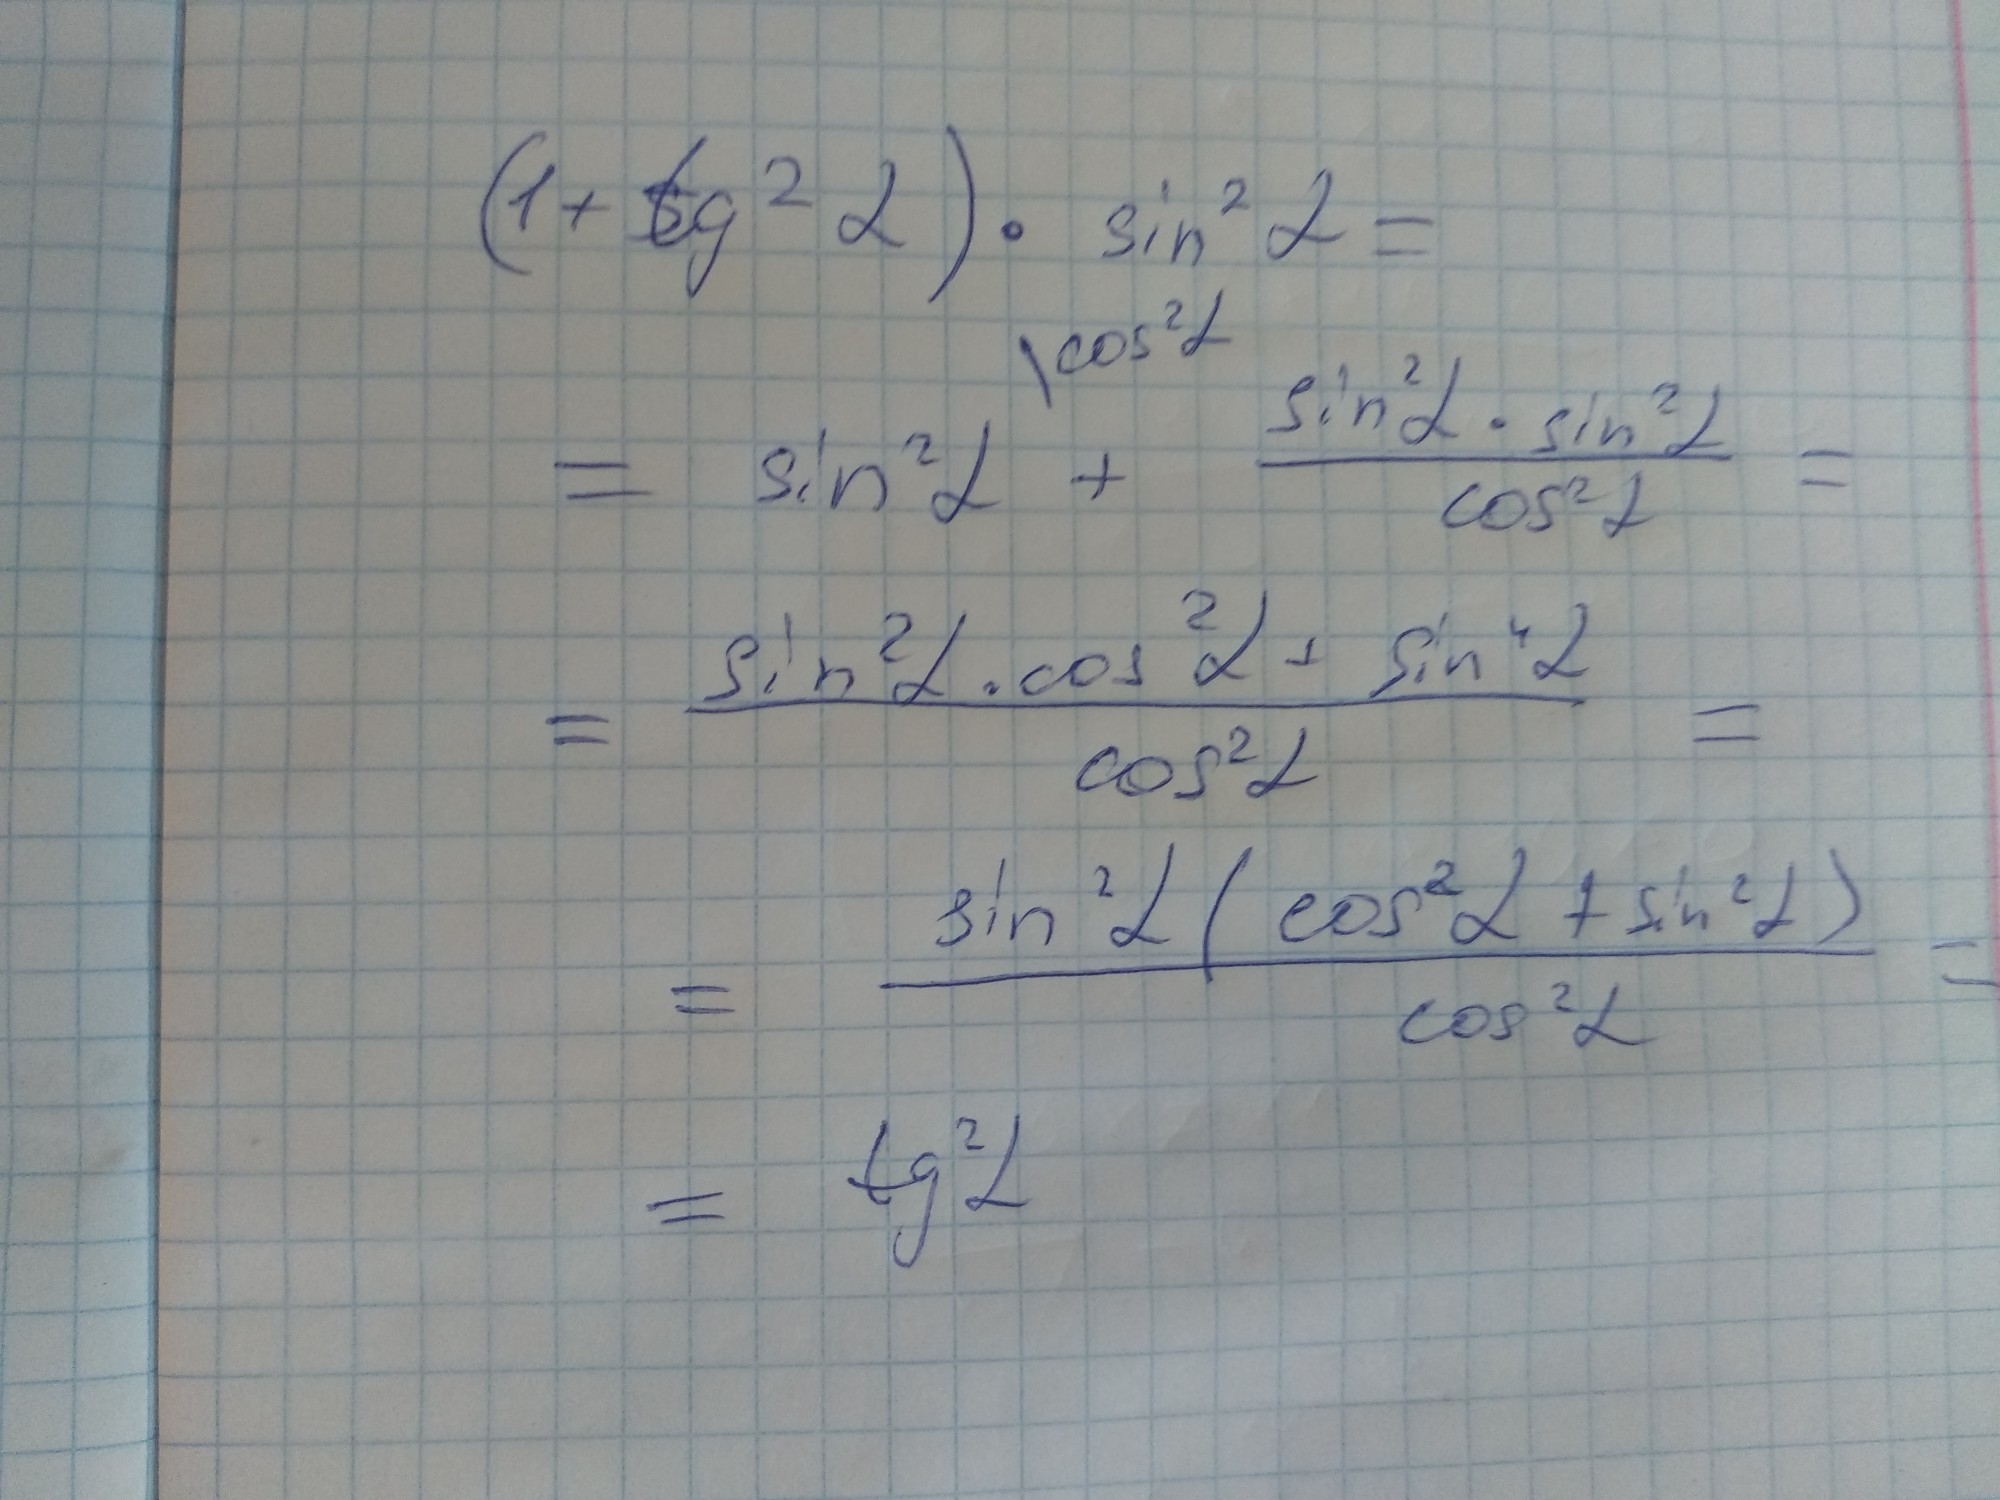 (1 + tg² α) · sin² α =
\cos² α
= sin² α + (sin² α · sin² α) / (cos² α) =
= (sin² α · cos² α + sin⁴ α) / (cos² α) =
= (sin² α (cos² α + sin² α)) / (cos² α) =
= tg² α